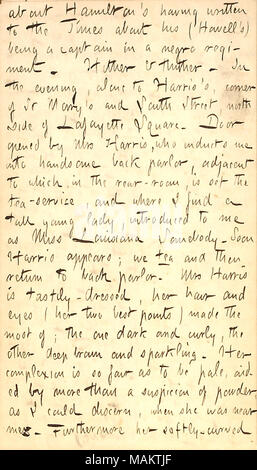 about Hamilton's having written
to the Times about his (Howell's)
being a captain in a negro regi-
ment. Hither & thither. In
the evening, alone to Harris's, corner
of St Mary's and South Street, north
side of Lafayette Square. Door
opened by Mrs Harris, who inducts me
into handsome back parlor, adjacent
to which, in the rear-room, is set the
tea-service, and where I find a
tall young lady, introduced to me
as Miss Louisiana Somebody. Soon
Harris appears; we tea and then
return to back parlor. Mrs Harris
is tastily-dressed, her hair and
eyes (her two best points) made the
most of; the one dark and curly, the
other deep brown and sparkling. Her
complexion is so fair as to be pale, aid-
ed by more than a suspicion of powder,
as I could discern, when she was near
me. Furthermore her softly-curved
alamy
Image ID: MAKTJF
www.alamy.com